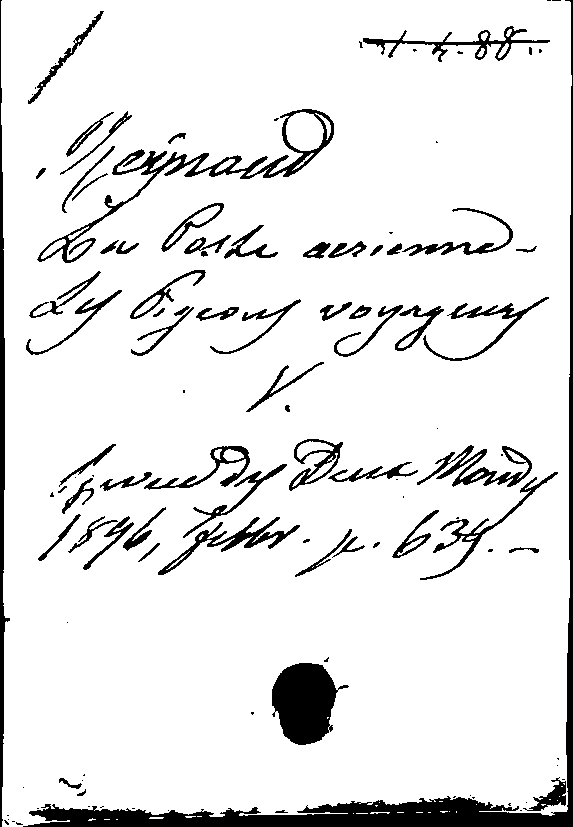 31.4.88.
Reynaud
La Poste aerienne-
Les Pigeons voyageurs
V.
Revue des Deux Mondes
1896, Febbr. p. 639.-